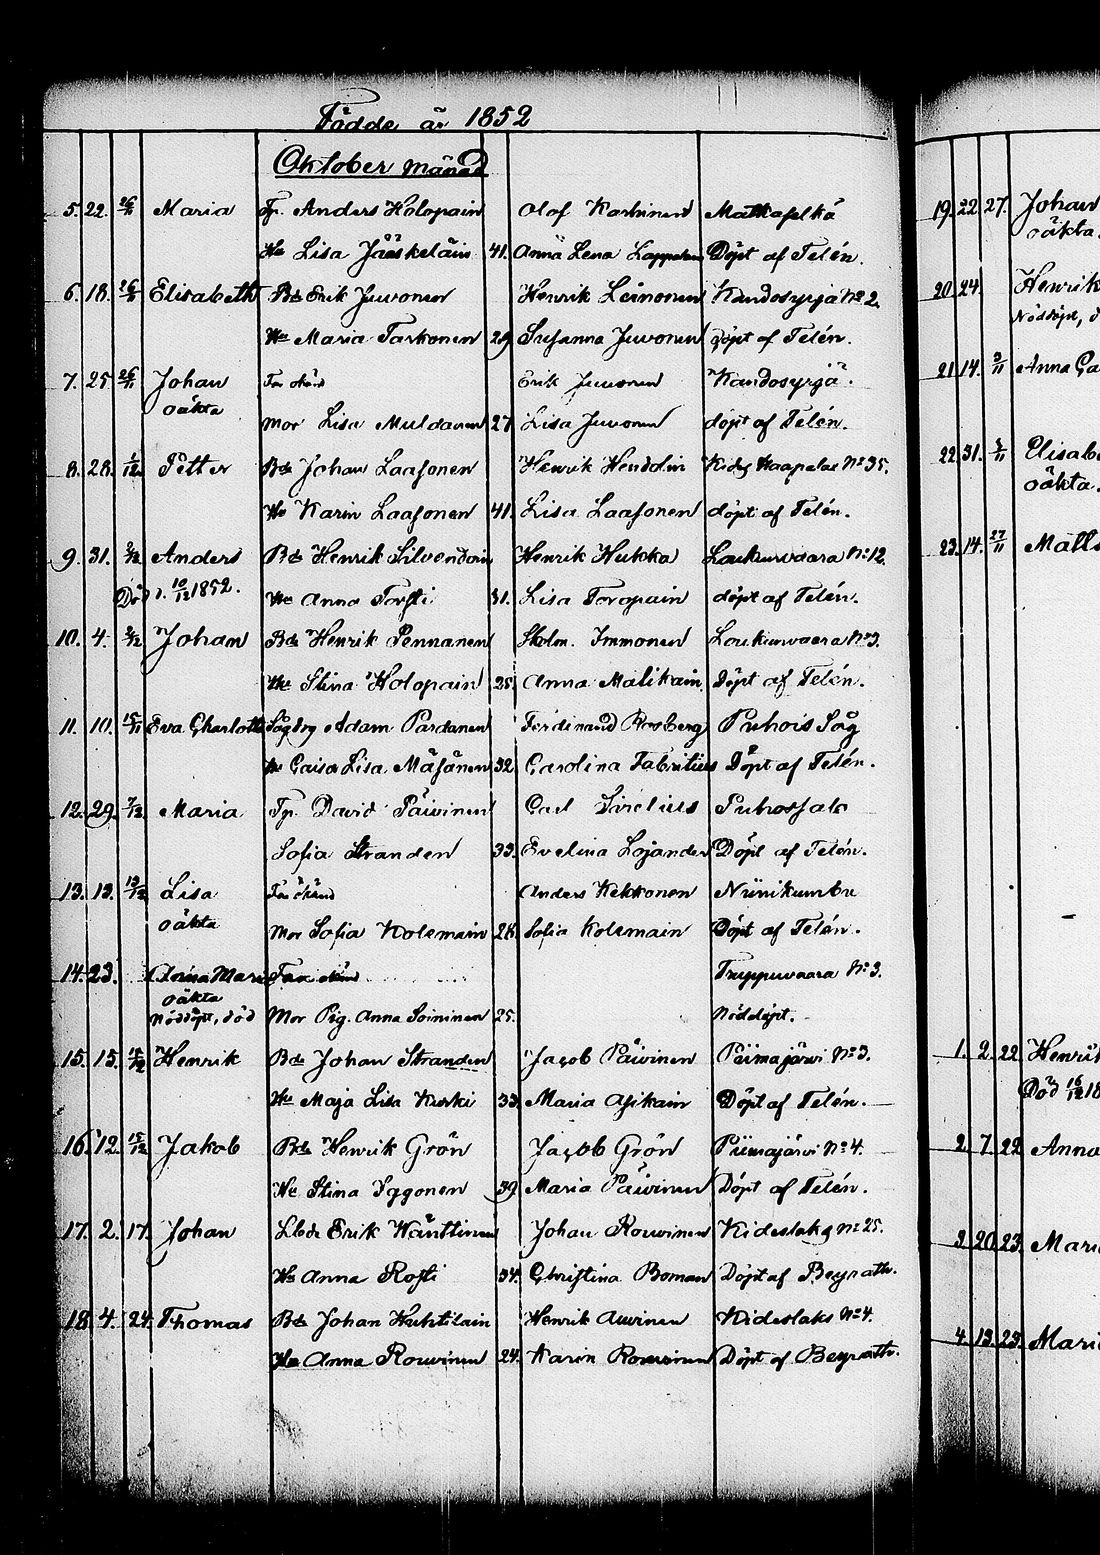 Födde år 1852
Oktober månad
5. 22. 26/11 Maria Tp. Anders Holopain Olof Karhinen Matkaselkä
Hu Lisa Jääskeläin 41. Anna Lena Lappalain Döpt af Telén.
6. 18. 26/11 Elisabeth Bd Erik Juvonen Henrik Leinonen Kandosyrjä No 2.
Hu Maria Tarkonen 29 Susanna Juvonen döpt af Telén.
7. 25 26/11 Johan Far okänd Erik Juvonen Kandosyrjä.
oäkta
Mor Lisa Muldanen 27 Lisa Juvonen döpt af Telén.
8. 28. 1/12 Petter Bd Johan Laasonen Henrik No 35.
Hu Karin Laasonen 41. Lisa Laasonen döpt af Telén.
9. 31. 2/12 Anders Bd Henrik Silvendoin Henrik Hukka Laukunvaara No 12.
Död d. 10/12 1852.
Hu Anna Torsti 31. Lisa Toropain döpt af Telén.
10. 4. 2/12 Johan Bd Henrik Pennanen Skolm. Immonen Laukunvaara No 3.
Hu Stina Holopain 25 Anna Malikain Döpt af Telén.
11. 10. 15/11 Eva Charlotta Sågdrg Adam Pardanen Ferdinand Rosberg Puhois Såg
Hu Caisa Lisa Mäsänen 32. Carolina Fabritius Döpt af Telén.
12. 29. 7/12 Maria Tp. David Päivinen Carl Sirelius Puhossalo
Sofia Stranden 33. Evelina Lojander Döpt af Telén.
13. 13. 13/12 Lisa Far okänd Anders Kekkonen Niinikumbu
oäkta
Mor Sofia Kolemain 28. Sofia Kolemain Döpt af Telén.
14. 23. Anna Maria Far okänd Truppuvaara No 3.
oäkta
Nöddöpt, död Mor Pig. Anna Soininen 25. Nöddöpt.
15. 15. 15/12 Henrik Bd Johan Stranden Jacob Päivinen Piimajärvi No 3.
Hu Maja Lisa Kurki 33. Maria Asikain Döpt af Telén.
16. 12. 15/12 Jakob Bd Henrik Grön Jacob Grön Piimajärvi No 4.
Hu Stina Iggonen 39 Maria Päivinen Döpt af Telén.
17. 2. 17. Johan Lbd Erik Wänttinen Johan Rouvinen Kideslaks No 25.
Hu Anna Rosti 34. Christina Boman Döpt af Beyrath.
18. 4. 24. Thomas Bd Johan Huhtilain Henrik Auvinen Kideslaks No 4.
Hu Anna Rouvinen 24. Karin Rouvinen Döpt af Beyrath.
19. 22. 27. Johan
oäkta.
20. 24. Henrik
Nöddöpt, d
21. 14. 3/11 Anna Ca
22. 31. 5/11 Elisabe
oäkta.
23. 14. 27/11 Matts
1. 2. 22 Henrik
Död 16/12 18
2. 7. 22 Anna
3. 20. 23. Mari
4. 13. 23. Mari